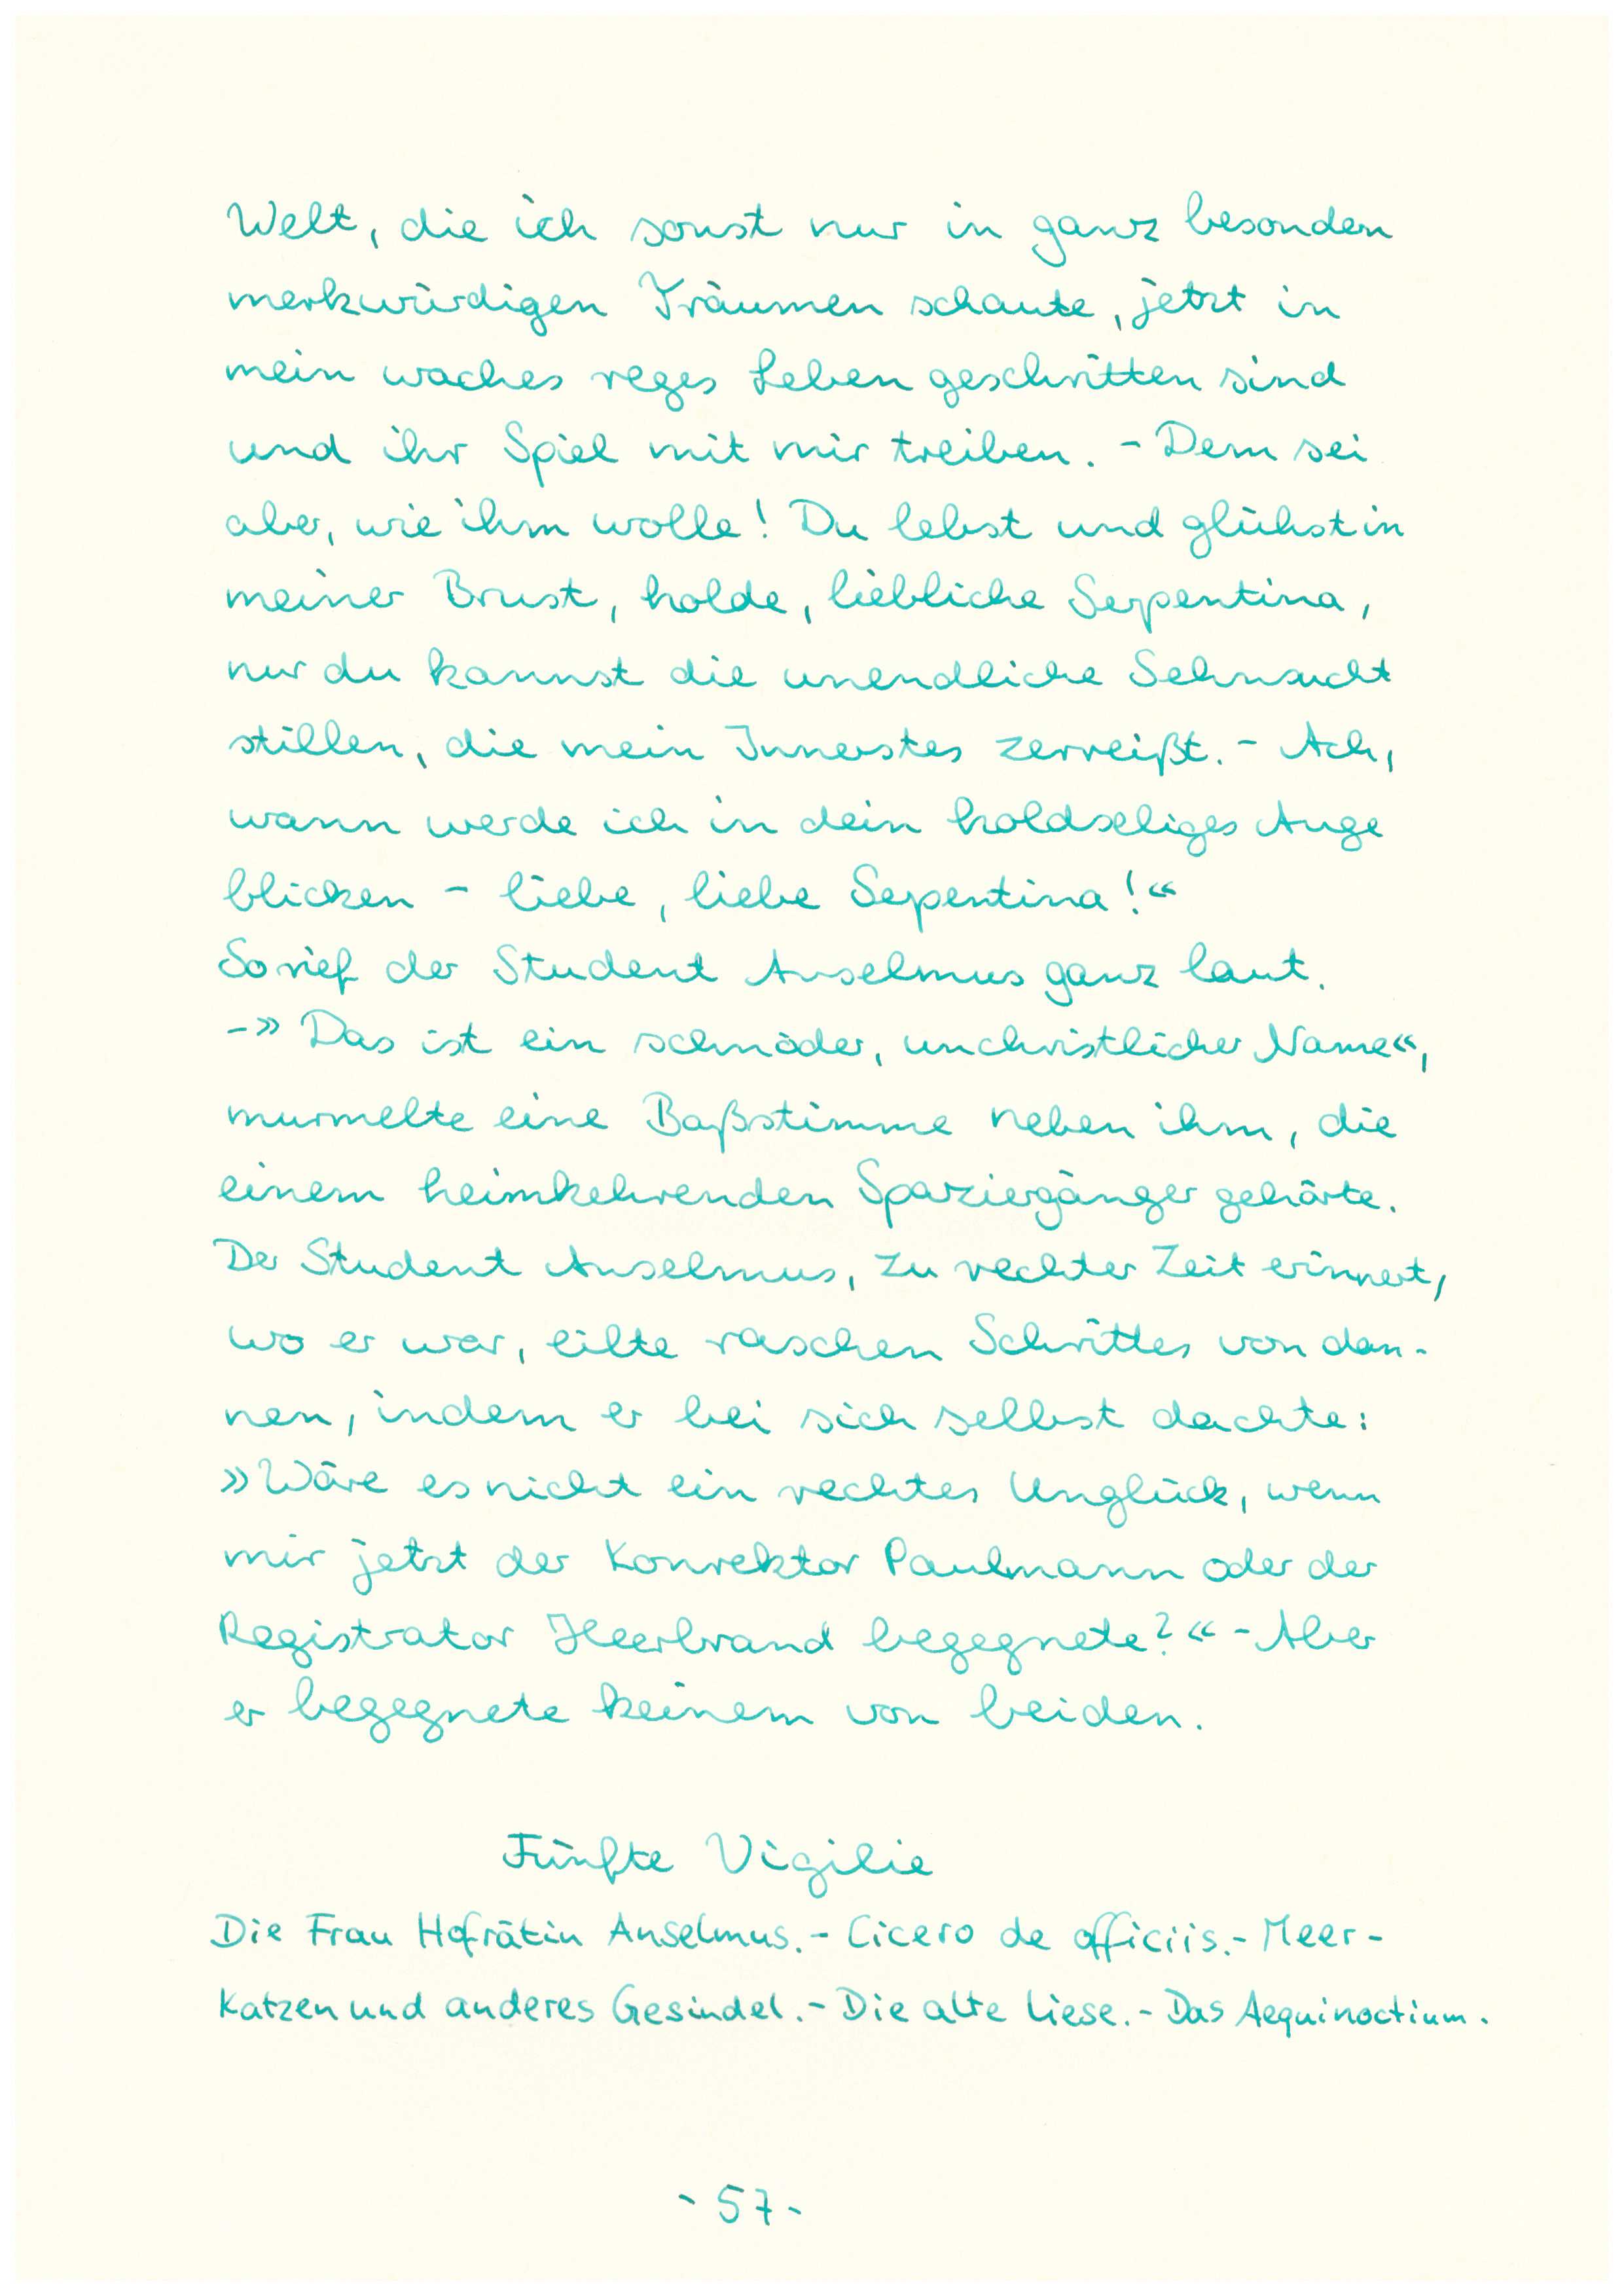 Welt, die ich sonst nur in ganz besondern
merkwürdigen Träumen schaute, jetzt in
mein waches reges Leben geschritten sind
und ihr Spiel mit mir treiben. - Dem sei
aber, wie ihm wolle! Du lebst und glühst in
meiner Brust, holde, liebliche Serpentina,
nur du kannst die unendliche Sehnsucht
stillen, die mein Innerstes zerreißt. - Ach,
wann werde ich in dein holdseliges Auge
blicken - liebe, liebe Serpentina!«
So rief der Student Anselmus ganz laut.
-» Das ist ein schnöder, unchristlicher Name«,
murmelte eine Baßstimme neben ihm, die
einem heimkehrenden Spaziergänger gehörte.
Der Student Anselmus, zu rechter Zeit erinnert,
wo er war, eilte raschen Schrittes von dan-
nen, indem er bei sich selbst dachte:
»Wäre es nicht ein rechtes Unglück, wenn
mir jetzt der Konrektor Paulmann oder der
Registrator Heerbrand begegnete?« - Aber
er begegnete keinem von beiden.
Fünfte Vigilie
Die Frau Hofrätin Anselmus. - Cicero de officiis. - Meer-
katzen und anderes Gesindel. - Die alte Liese. - Das Aequinoctium.
- 57 -